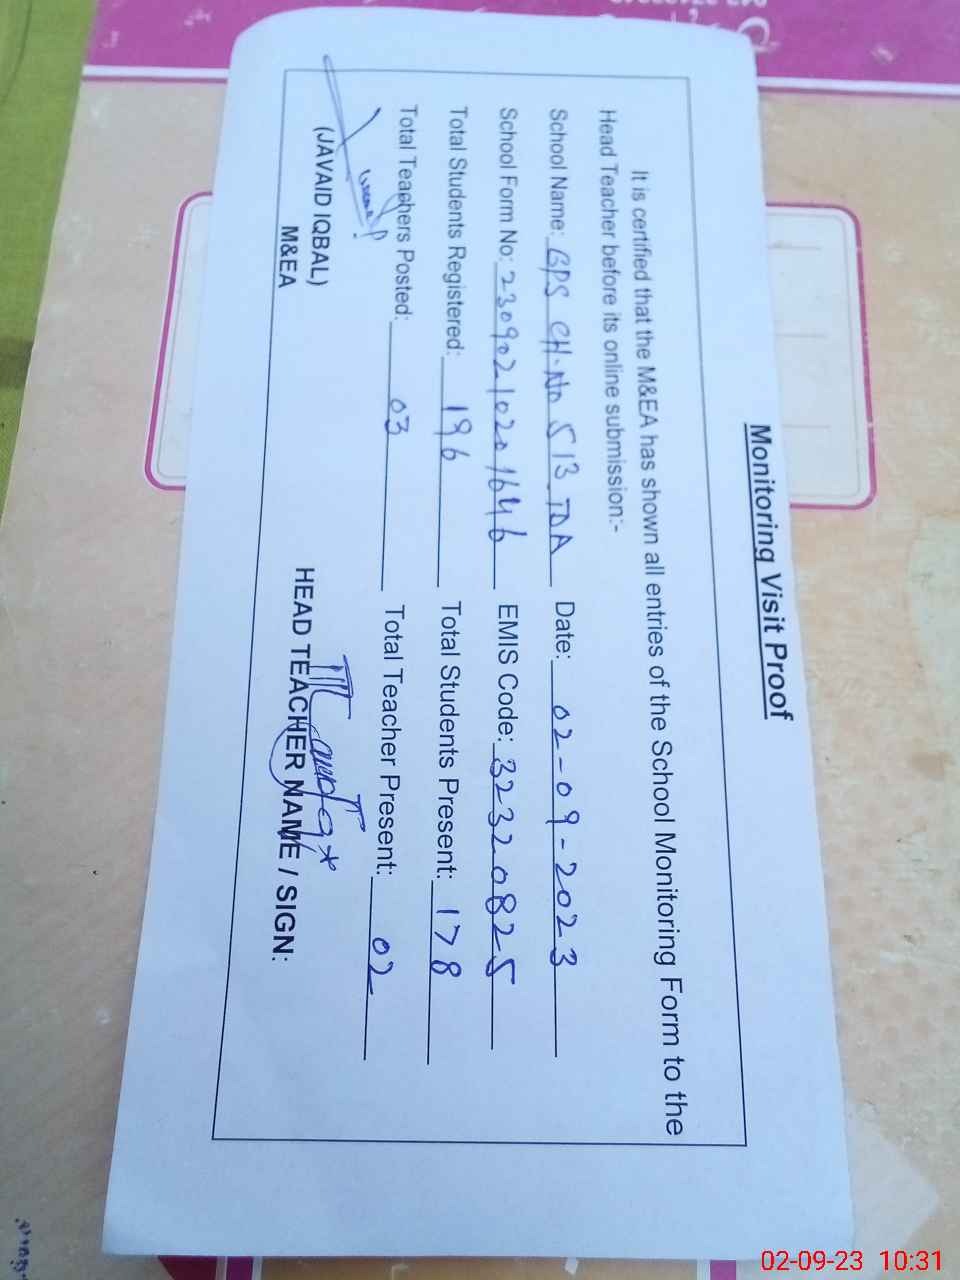 Monitoring Visit Proof
It is certified that the M&EA has shown all entries of the School Monitoring Form to the
Head Teacher before its online submission:-
School Name: GPS CH.No 513 TDA Date: 02-09-2023
School Form No: 23090210201646 EMIS Code: 32320825
Total Students Registered: 196 Total Students Present: 178
Total Teachers Posted: 03 Total Teacher Present: 02
(JAVAID IQBAL) HEAD TEACHER NAME / SIGN:
M&EA
02-09-23 10:31